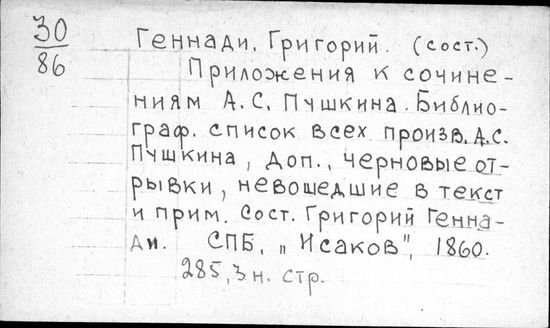 30
86
Геннади, Григорий. (сост.)
Приложения к сочине-
ниям А.С. Пушкина. Библио-
граф. список всех произв. А.С.
Пушкина, доп., черновые от-
рывки, невошедшие в текст
и прим. Сост. Григорий Генна-
ди. СПБ, „Исаков", 1860.
285, 3 н. стр.